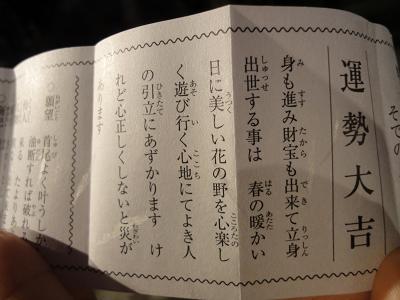 その
運勢大吉
身も進み財宝も出来て立身
出世する事は 春の暖かい
日に美しい花の野を心楽し
く遊び行く心地にてよき人
の引立にあずかります け
れど心正しくしないと災が
あります
○願望 首尾よく叶うしか
油断すれば破れる